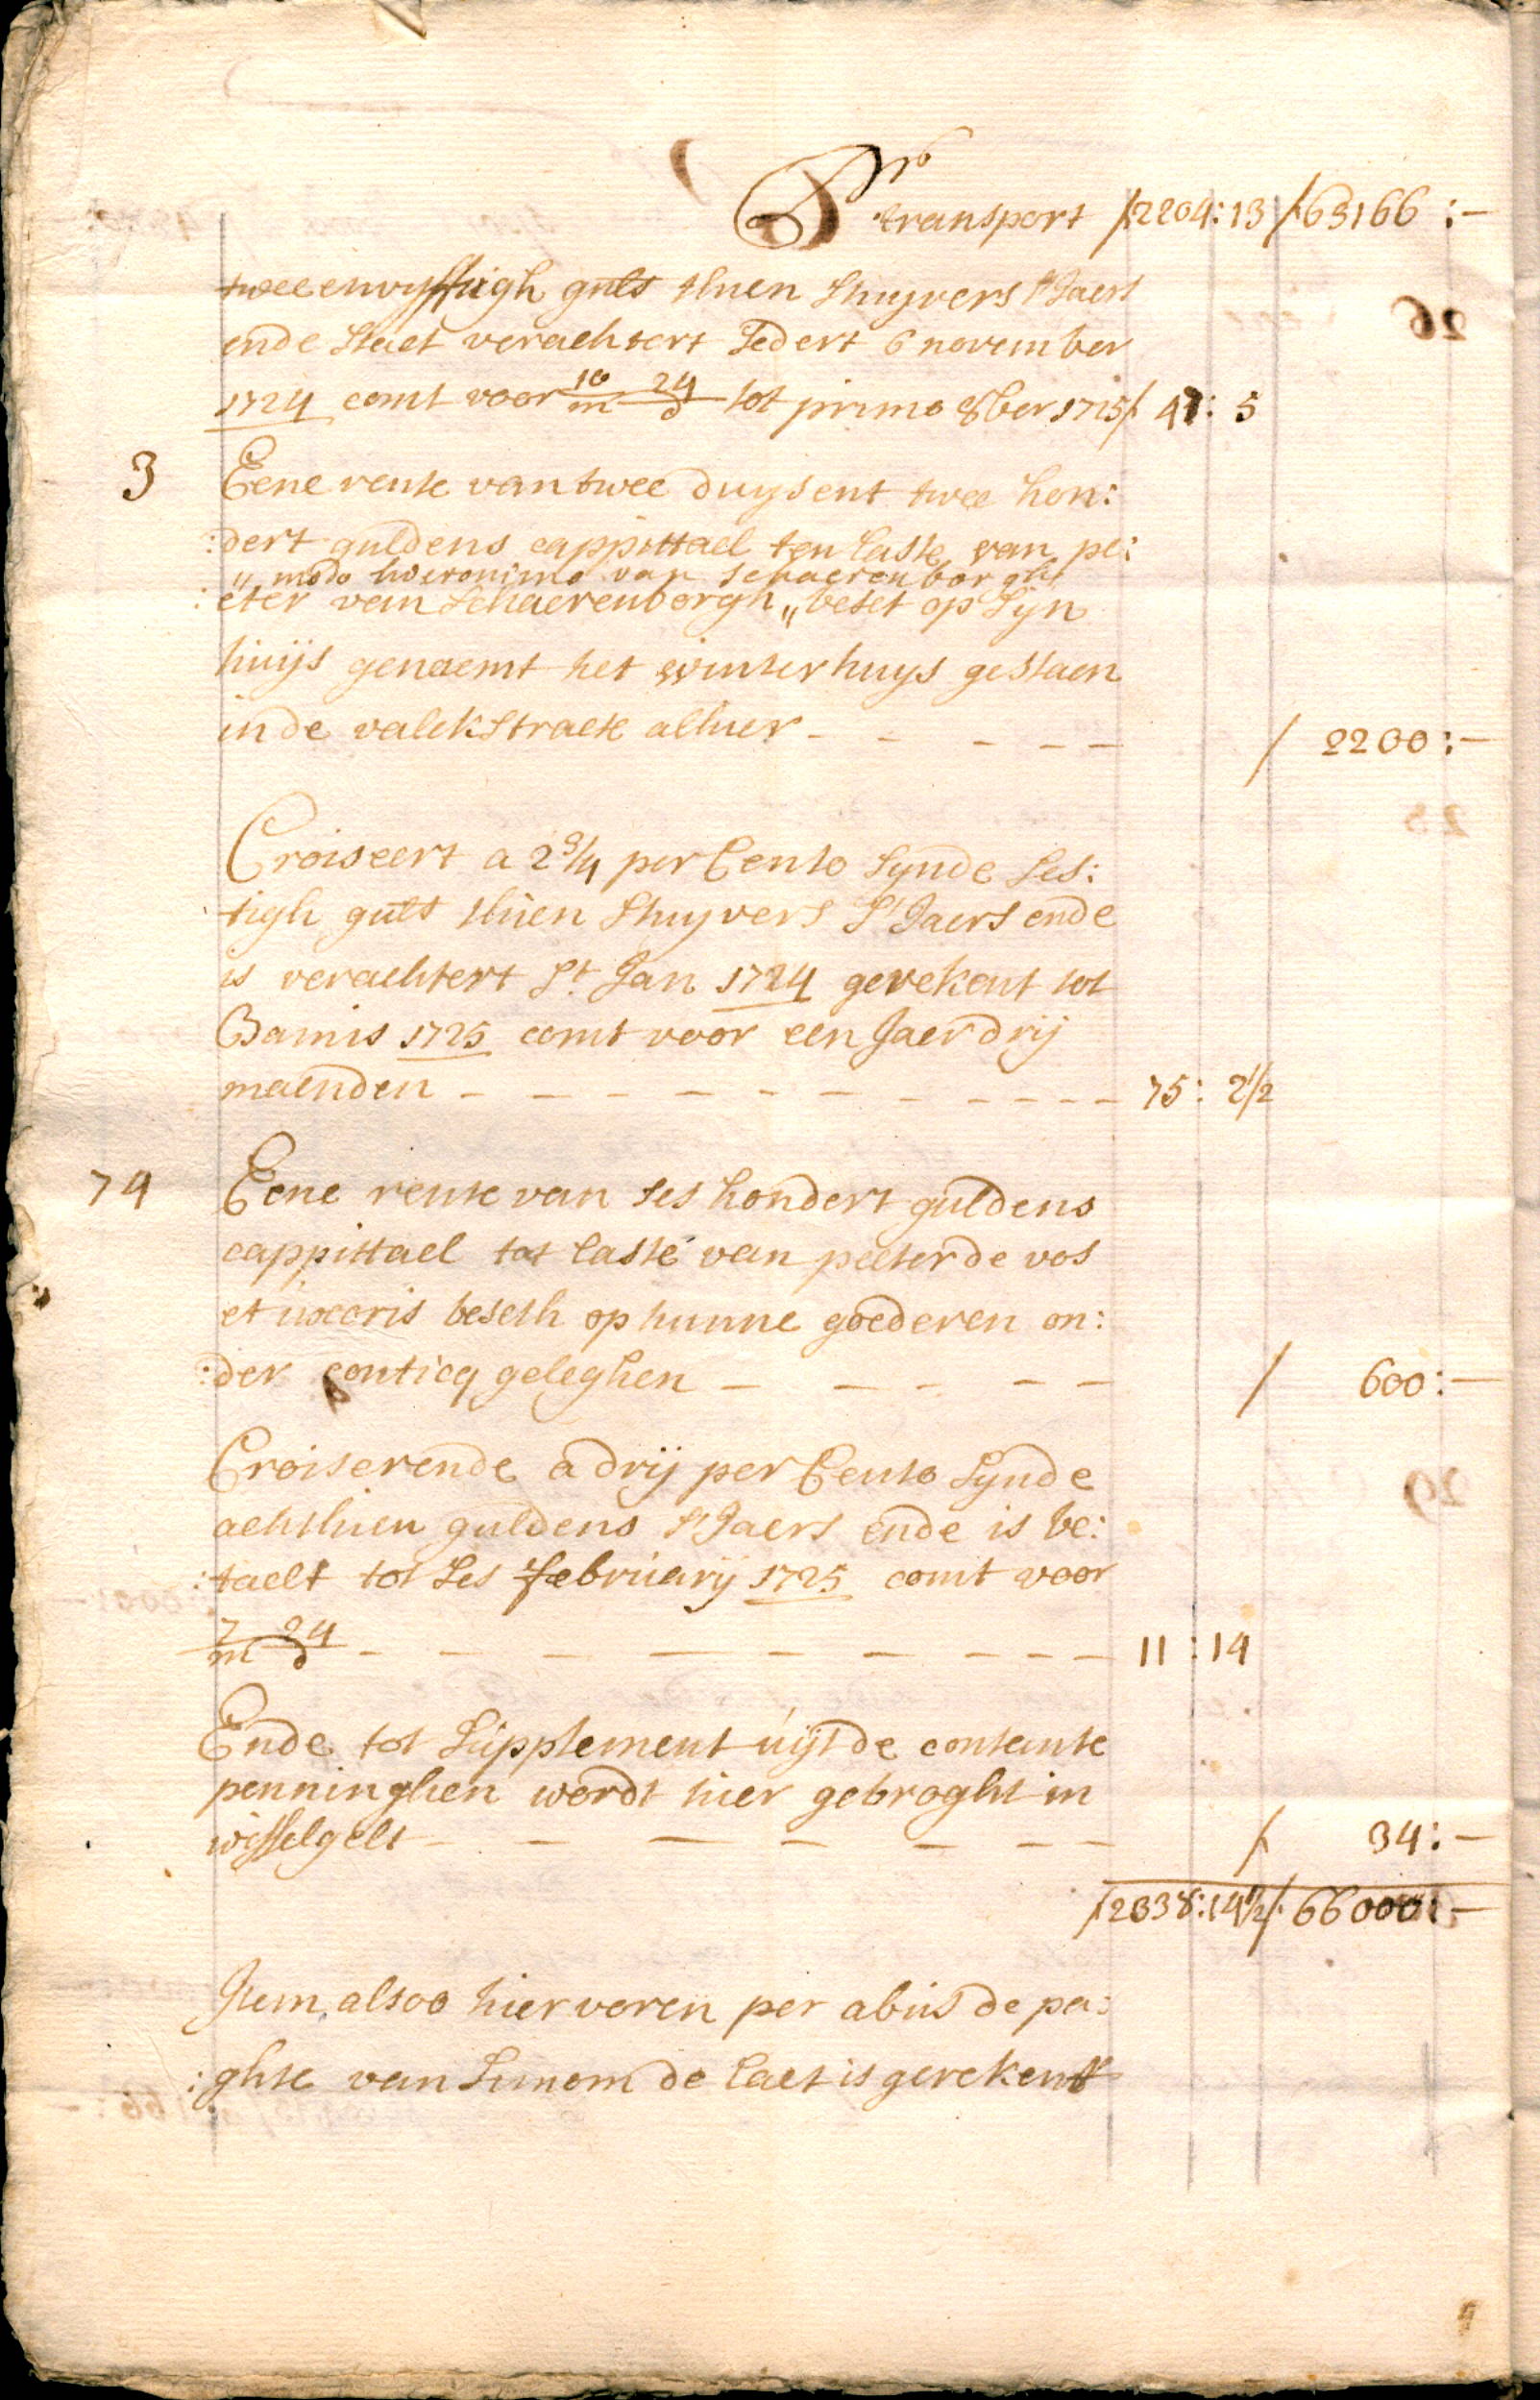 Pro
transport ƒ2204:13 ƒ63166:—
tweeenvyftigh guls thien stuyvers s'Jaers
ende staet verachtert sedert 6 november
1724 comt voor 10/m 24/d tot primo 8ber 1725 ƒ 47: 5
3 Eene rente van twee duysent twee hon:
:dert guldens cappittael ten laste van pe:
„ modo hieronimo van schaerenborghe
:eter van Schaerenborgh „ beset op syn
huijs genaemt het winterhuys gestaen
inde valckstraete alhier - - - - - ƒ 2200:—
Croiseert a 2 3/4 per Cento synde ses:
tigh guls thien stuyvers s'Jaers ende
is verachtert St Jan 1724 gerekent tot
Bamis 1725 comt voor een Jaer drij
maenden - - - - - - - - - - - - 75: 2 1/2
74 Eene rente van ses hondert guldens
cappittael tot laste van peeter de vos
et uxoris beseth op hunne goederen on:
:der conticq geleghen - - - - - ƒ 600:—
Croiserende a drij per Cento synde
achthien guldens s'Jaers ende is be:
:taelt tot ses februarij 1725 comt voor
7/m 24/d - - - - - - - - - 11:14
Ende tot supplement uijt de contante
penninghen wordt hier gebroght in
wisselgelt - - - - - - ƒ 34:—
ƒ2338:14 1/2 ƒ66000:—
Item alsoo hier voren per abus de pa:
:ghte van Simom de laet is gerekent